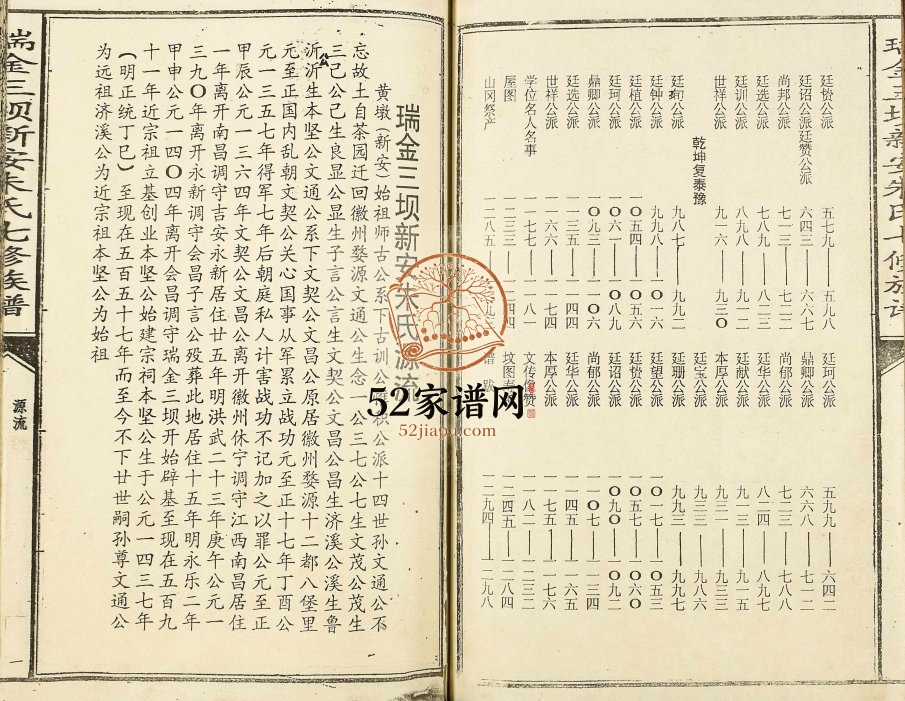 瑞金三坝新安朱氏七修族谱
廷贽公派 五七九——五九八
廷诏公派廷赞公派 六四三——六六七
尚邦公派 七一三——七二二
廷选公派 七八九——八二三
廷训公派 八九八——九一二
世祥公派 九一六——九三〇
乾坤复泰豫
廷瑜公派 九八七——九九二
廷钟公派 九九八——一〇一六
廷植公派 一〇五四——一〇五六
廷珂公派 一〇六一——一〇八九
鼎卿公派 一〇九三——一一〇六
廷选公派 一一三三——一一四四
世祥公派 一一六六——
学位名人名事 一一七七——一一八一
屋图
山冈祭产 一二八五——
廷珂公派 五九九——六四二
鼎卿公派 六六八——七一二
尚郁公派 七二三——七八八
廷华公派 八二四——八九七
廷献公派 九一三——九一五
本厚公派 九三一——九三三
廷宝公派 九三三——九八六
廷珊公派 九九三——九九七
廷望公派 一〇一七——一〇五三
廷贽公派 一〇五七——一〇六〇
廷诏公派 一〇九〇——一〇九二
尚郁公派 一一〇七——一一三四
廷华公派 一一四五——一一六五
本厚公派 一一七五——一一七六
文传像赞 一一八二——一二三二
坟图 一二四五——一二八四
谱跋 一二九四——一二九八
瑞金三坝新安朱氏源流
黄墩（新安）始祖师古公系下古训公 公派十四世孙文通公不
忘故土自茶园迁回徽州婺源文通公生念一公三七公七生文茂公茂生
三己公己生良显公显生子言公言生文契公文昌公昌生济溪公溪生鲁
沂公沂生本坚公文通公系下文契公文昌公原居徽州婺源十二都八堡里
元至正国内乱朝文契公关心国事从军累立战功元至正十七年丁酉公
元一三五七年得军七年后朝庭私人计害战功不记加之以罪公元至正
甲辰公元一三六四年文契公文昌公离开徽州休宁调守江西南昌居住
一年离开南昌调守吉安永新居住廿五年明洪武二十三年庚午公元一
三九〇年离开永新调守会昌子言公殁葬此地居住十五年明永乐二年
甲申公元一四〇四年离开会昌调守瑞金三坝开始辟基至现在五百九
十一年近宗祖立基创业本坚公始建宗祠本坚公生于公元一四三七年
（明正统丁巳）至现在五百五十七年而至今不下廿世嗣孙尊文通公
为远祖济溪公为近宗祖本坚公为始祖
瑞金三坝新安朱氏七修族谱
源流
一
52家谱网
52jiapu.com